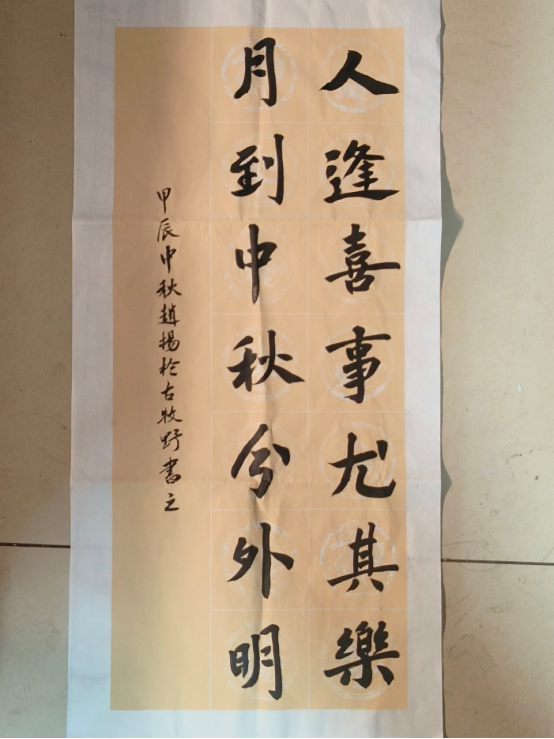 人逢喜事尤其樂
月到中秋分外明
甲辰中秋趙揚於古牧野書之